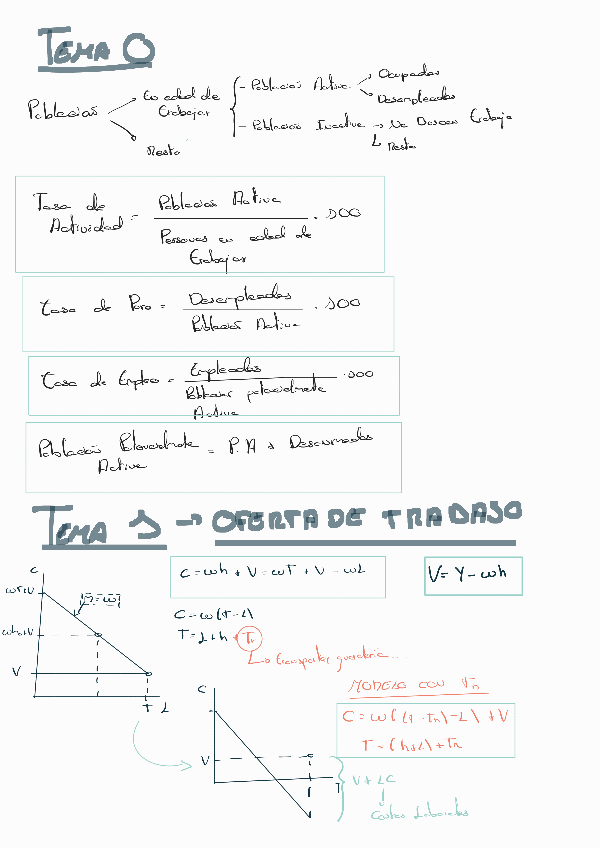 TEMA 0
Población
En edad de trabajar
Resto
- Población Activa
Ocupados
Desempleados
- Población Inactiva → No Desean trabajar
Resto
Tasa de Actividad = Población Activa / Personas en edad de trabajar · 100
Tasa de Paro = Desempleados / Población Activa · 100
Tasa de Empleo = Empleados / Población potencialmente Activa · 100
Población Potencialmente Activa = P.A + Desanimados
TEMA 1 → OFERTA DE TRABAJO
C
C = wh + V = wT + V - wL
V = Y - wh
wT+V
|P|=|w|
wh+V
V
T L
C = w(T-L)
T = L + h + Tn
↳ transportar, guardería...
MODELO CON Tn
C = w((T-Tn)-L)+V
T = (h+L)+Tn
C
V
T
V + LC
Costes Laborales